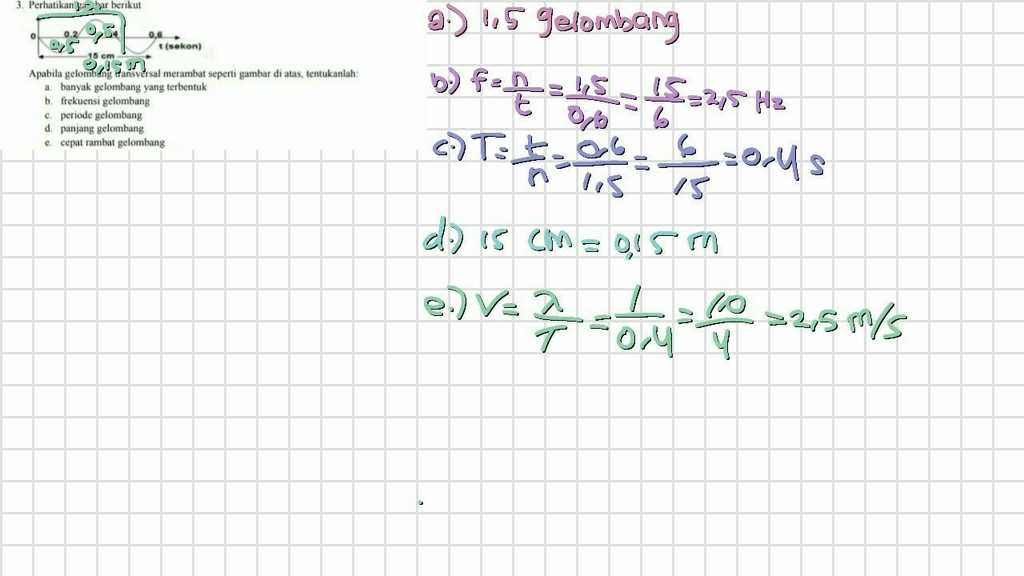 3. Perhatikan gambar berikut
1λ
0 0,2 0,5 0,4 0,6
0,5 t (sekon)
15 cm
0,15 m
Apabila gelombang transversal merambat seperti gambar di atas, tentukanlah:
a. banyak gelombang yang terbentuk
b. frekuensi gelombang
c. periode gelombang
d. panjang gelombang
e. cepat rambat gelombang
a.) 1,5 gelombang
b.) f = n/t = 1,5/0,6 = 15/6 = 2,5 Hz
c.) T = t/n = 0,6/1,5 = 6/15 = 0,4 s
d.) 15 cm = 0,15 m
e.) V = λ/T = 1/0,4 = 10/4 = 2,5 m/s